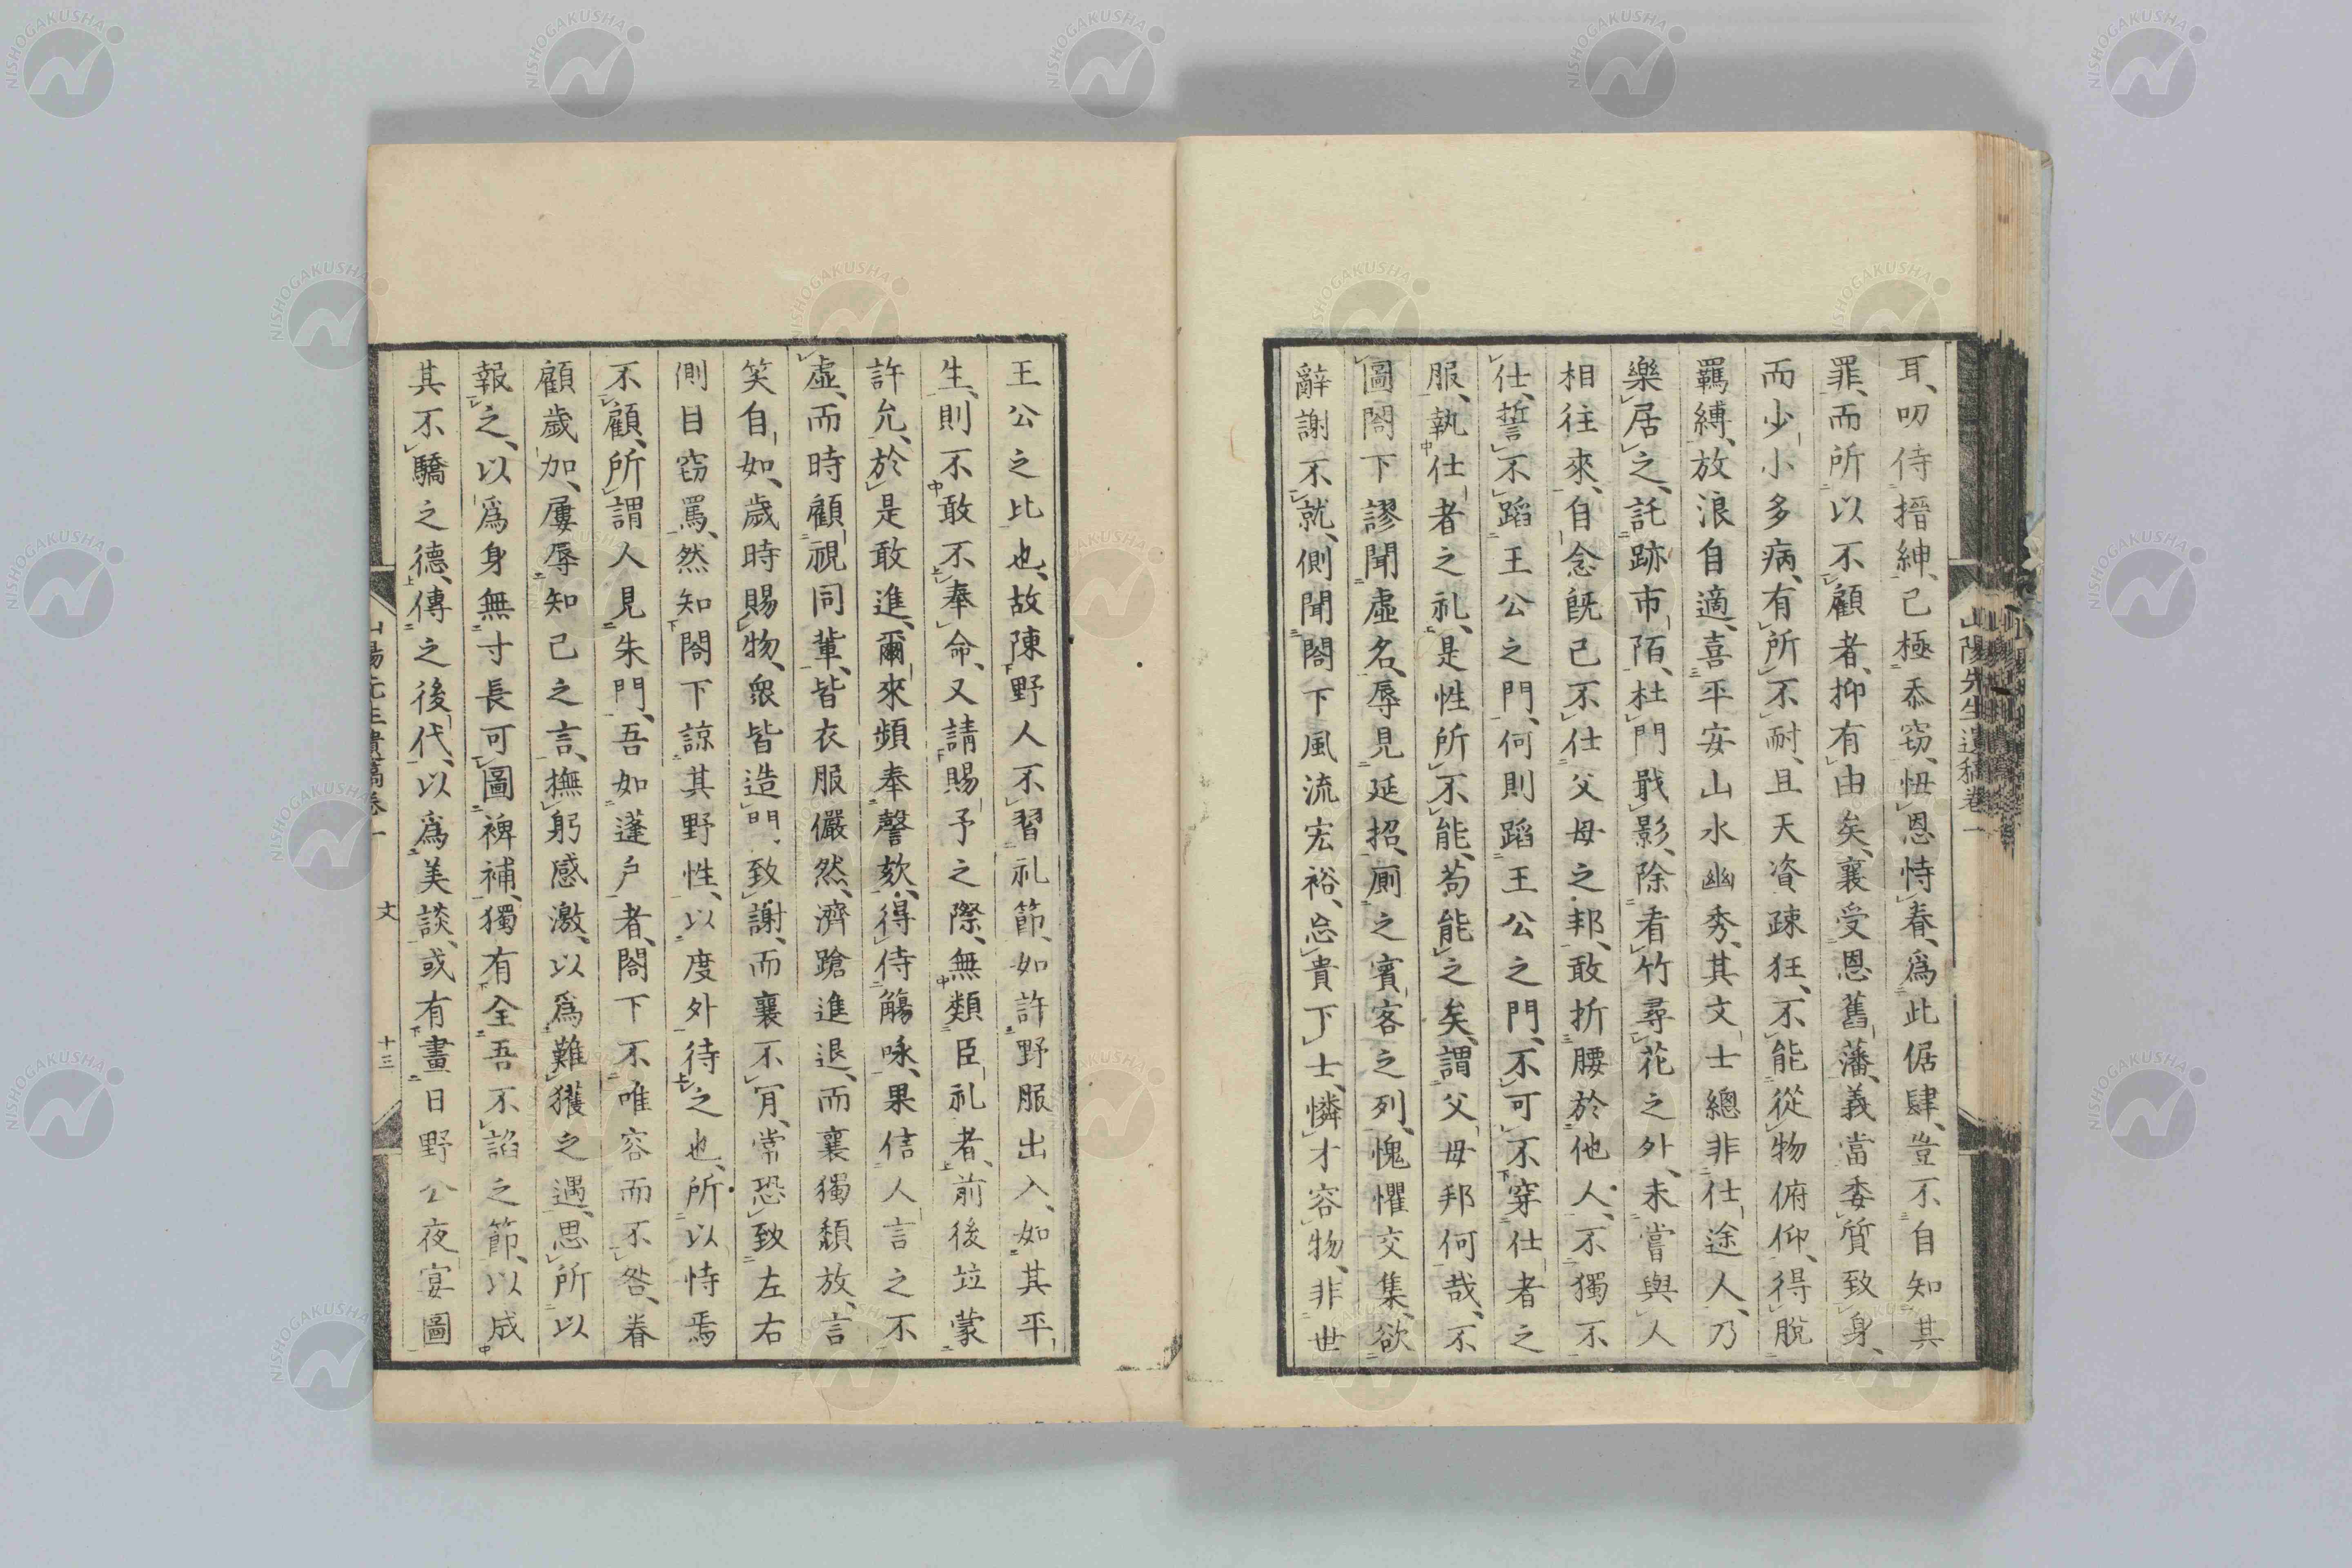 山陽先生遺稿卷一
耳、叨侍搢紳、己極忝窃、忸恩恃眷、爲此倨肆、豈不自知其
罪、而所以不顧者、抑有由矣、襄受恩舊藩、義當委質致身、
而少小多病、有所不耐、且天資疎狂、不能從物俯仰、得脫
羈縛、放浪自適、喜平安山水幽秀、其文士總非仕途人、乃
樂居之、託跡市陌、杜門戢影、除看竹尋花之外、未嘗與人
相往來、自念既已不仕父母之邦、敢折腰於他人、不獨不
仕、誓不蹈王公之門、何則蹈王公之門、不可不穿仕者之
服、執仕者之礼、是性所不能、苟能之矣、謂父母邦何哉、不
圖閤下謬聞虛名、辱見延招、廁之賓客之列、愧懼交集、欲
辭謝不就、側聞閤下風流宏裕、忘貴下士、憐才容物、非世
王公之比也、故陳野人不習礼節、如許野服出入、如其平
生、則不敢不奉命、又請賜予之際、無類臣礼者、前後竝蒙
許允、於是敢進、爾來頻奉謦欬、得侍觴咏、果信人言之不
虛、而時顧視同輩、皆衣服儼然、濟蹌進退、而襄獨頹放、言
笑自如、歲時賜物、衆皆造門、致謝、而襄不肎、常恐致左右
側目窃罵、然知閤下諒其野性、以度外待之也、所以恃焉
不顧、所謂人見朱門、吾如蓬戶者、閤下不唯容而不咎、眷
顧歲加、屢辱知己之言、撫躬感激、以爲難獲之遇、思所以
報之、以爲身無寸長可圖裨補、獨有全吾不諂之節、以成
其不驕之德、傳之後代、以爲美談、或有畫日野公夜宴圖
文
十三